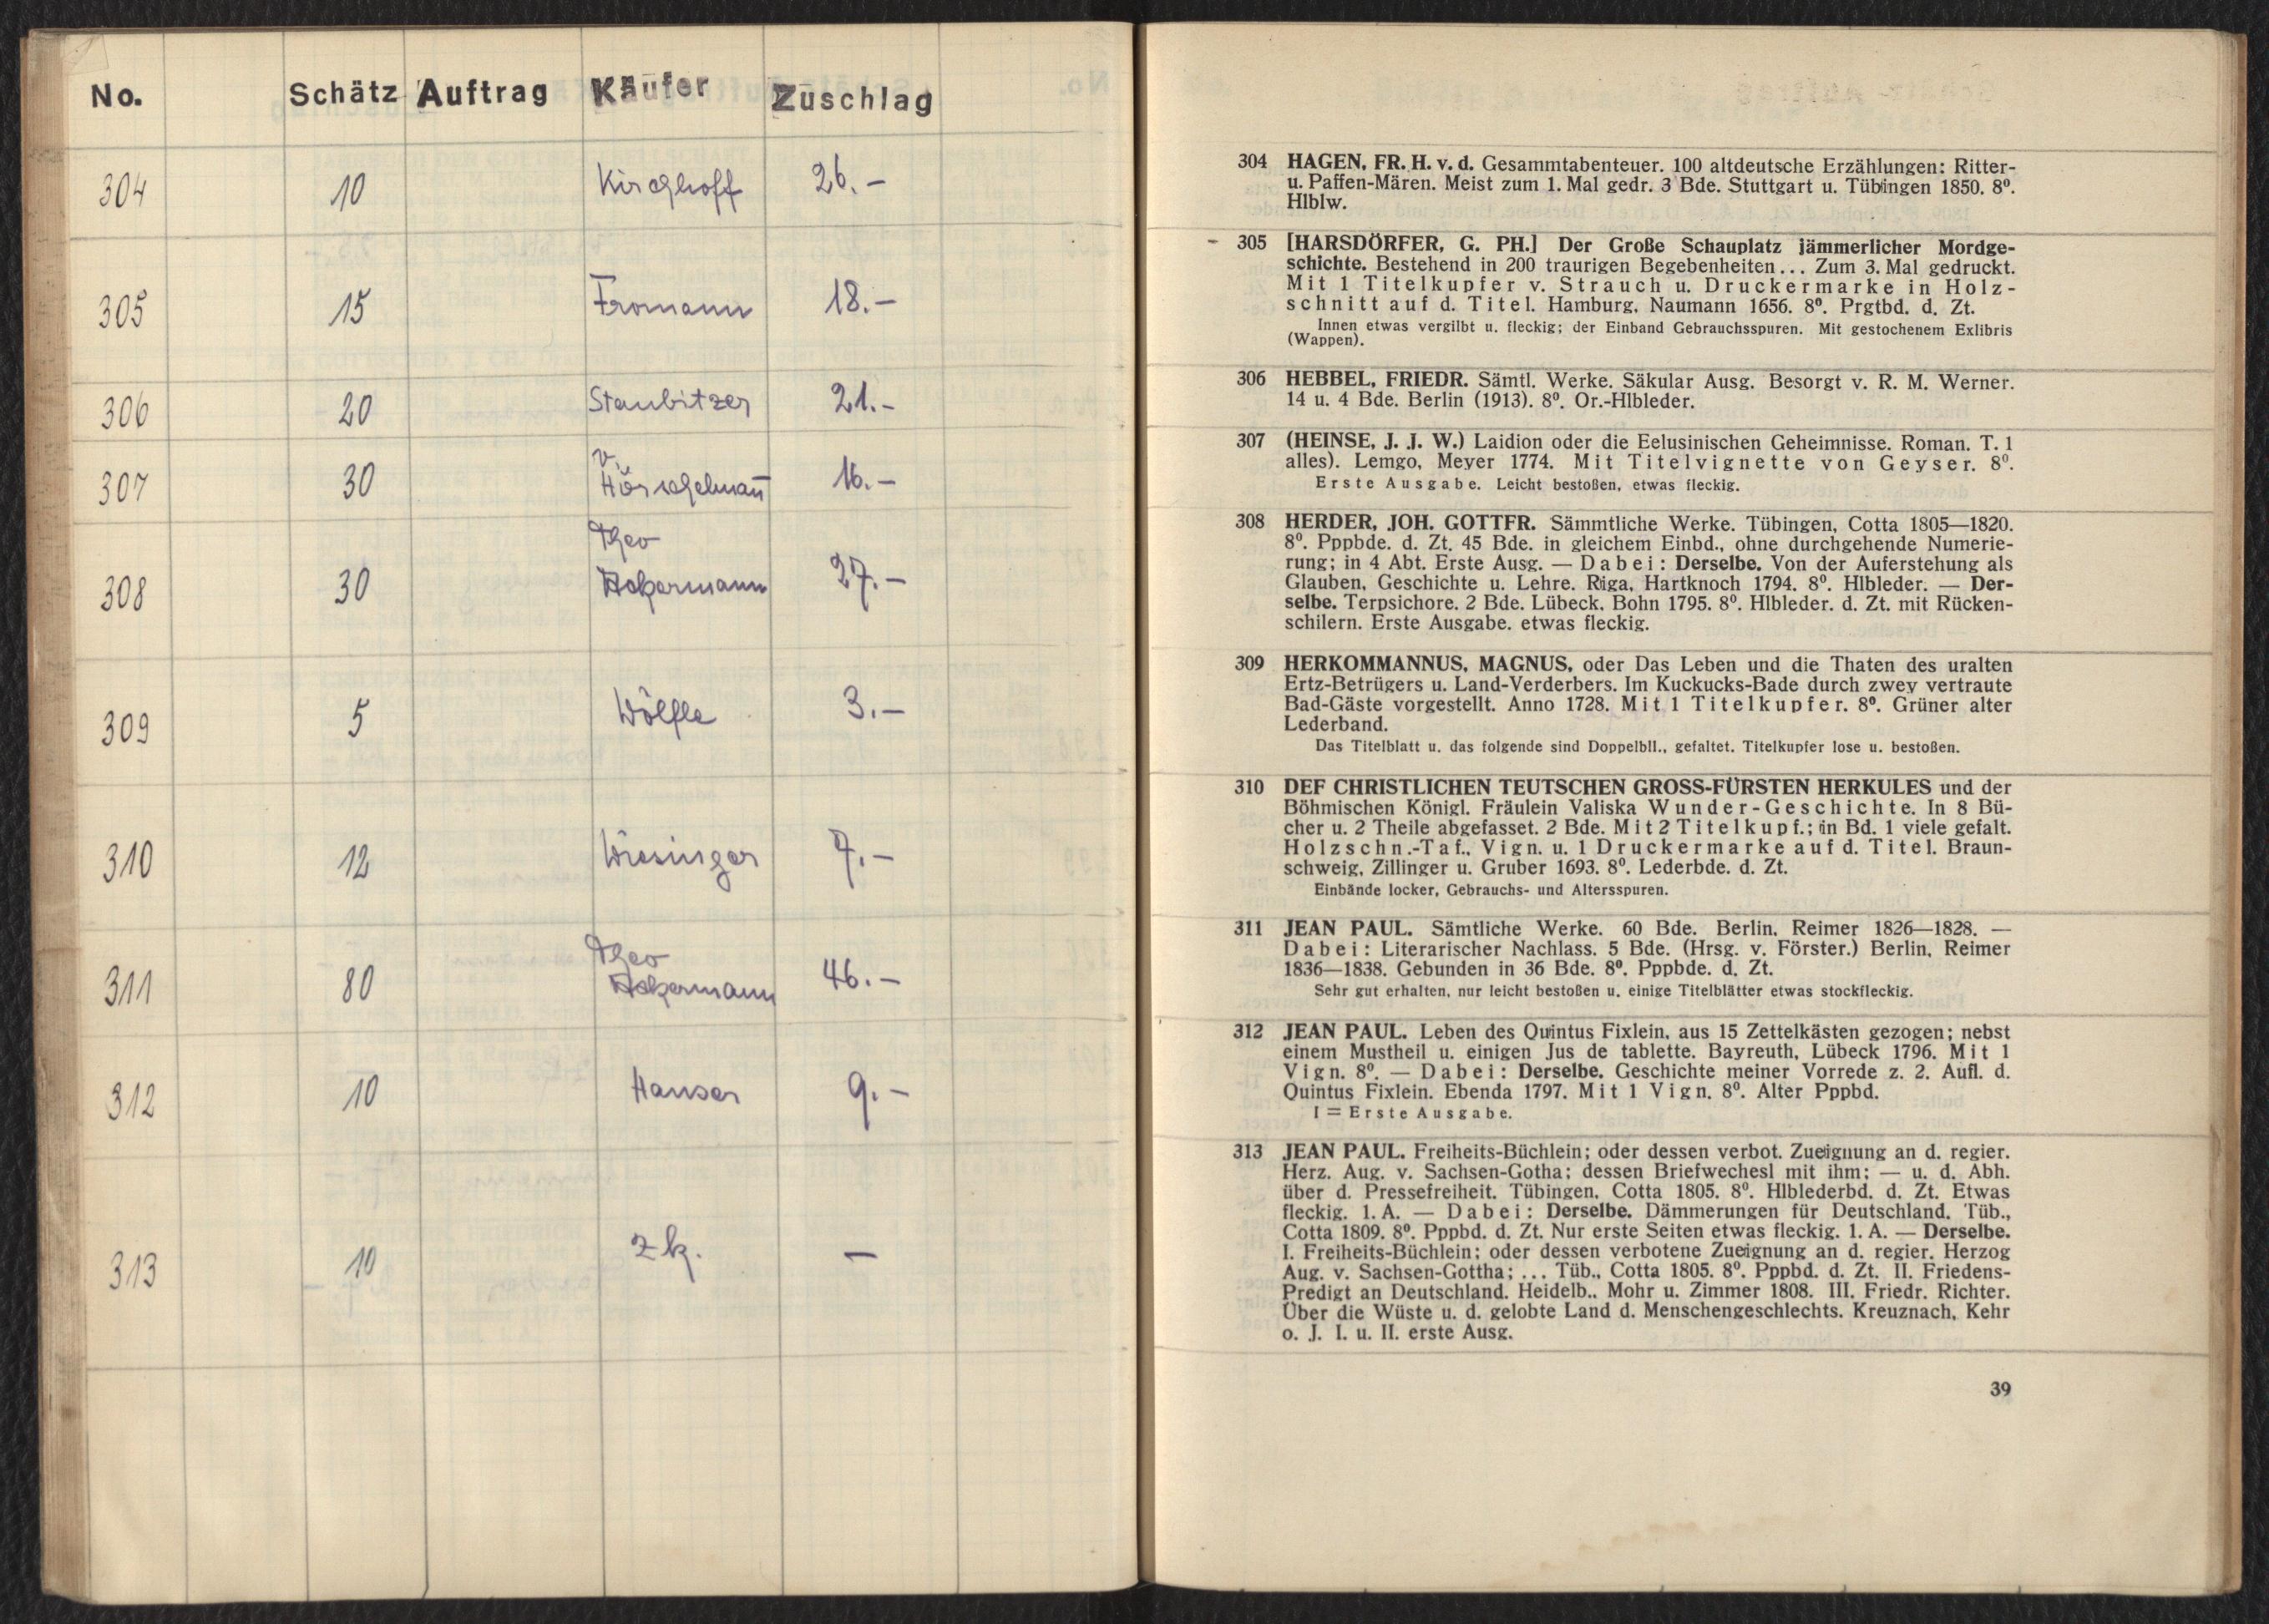 No. Schätz Auftrag Käufer Zuschlag
304 10 Kirchhoff 26.-
305 15 Fromann 18.-
306 20 Staubitzer 21.-
307 30 v. Hörschelmañ 16.-
308 30 Theo Ackermann 27.-
309 5 Wölfle 3.-
310 12 Wiesinger 7.-
311 80 Theo Ackermann 46.-
312 10 Hauser 9.-
313 10 zk. -
304 HAGEN, FR. H. v. d. Gesammtabenteuer. 100 altdeutsche Erzählungen: Ritter-
u. Paffen-Mären. Meist zum 1. Mal gedr. 3 Bde. Stuttgart u. Tübingen 1850. 8⁰.
Hlblw.
- 305 [HARSDÖRFER, G. PH.] Der Große Schauplatz jämmerlicher Mordge-
schichte. Bestehend in 200 traurigen Begebenheiten... Zum 3. Mal gedruckt.
Mit 1 Titelkupfer v. Strauch u. Druckermarke in Holz-
schnitt auf d. Titel. Hamburg, Naumann 1656. 8⁰. Prgtbd. d. Zt.
Innen etwas vergilbt u. fleckig; der Einband Gebrauchsspuren. Mit gestochenem Exlibris
(Wappen).
306 HEBBEL, FRIEDR. Sämtl. Werke. Säkular Ausg. Besorgt v. R. M. Werner.
14 u. 4 Bde. Berlin (1913). 8⁰. Or.-Hlbleder.
307 (HEINSE, J. J. W.) Laidion oder die Eelusinischen Geheimnisse. Roman. T. 1
alles). Lemgo, Meyer 1774. Mit Titelvignette von Geyser. 8⁰.
Erste Ausgabe. Leicht bestoßen, etwas fleckig.
308 HERDER, JOH. GOTTFR. Sämmtliche Werke. Tübingen, Cotta 1805—1820.
8⁰. Pppbde. d. Zt. 45 Bde. in gleichem Einbd., ohne durchgehende Numerie-
rung; in 4 Abt. Erste Ausg. — Dabei: Derselbe. Von der Auferstehung als
Glauben, Geschichte u. Lehre. Riga, Hartknoch 1794. 8⁰. Hlbleder. — Der-
selbe. Terpsichore. 2 Bde. Lübeck, Bohn 1795. 8⁰. Hlbleder. d. Zt. mit Rücken-
schilern. Erste Ausgabe. etwas fleckig.
309 HERKOMMANNUS, MAGNUS, oder Das Leben und die Thaten des uralten
Ertz-Betrügers u. Land-Verderbers. Im Kuckucks-Bade durch zwey vertraute
Bad-Gäste vorgestellt. Anno 1728. Mit 1 Titelkupfer. 8⁰. Grüner alter
Lederband.
Das Titelblatt u. das folgende sind Doppelbll., gefaltet. Titelkupfer lose u. bestoßen.
310 DEF CHRISTLICHEN TEUTSCHEN GROSS-FÜRSTEN HERKULES und der
Böhmischen Königl. Fräulein Valiska Wunder-Geschichte. In 8 Bü-
cher u. 2 Theile abgefasset. 2 Bde. Mit 2 Titelkupf.; in Bd. 1 viele gefalt.
Holzschn.-Taf., Vign. u. 1 Druckermarke auf d. Titel. Braun-
schweig, Zillinger u. Gruber 1693. 8⁰. Lederbde. d. Zt.
Einbände locker, Gebrauchs- und Altersspuren.
311 JEAN PAUL. Sämtliche Werke. 60 Bde. Berlin, Reimer 1826—1828. —
Dabei: Literarischer Nachlass. 5 Bde. (Hrsg. v. Förster.) Berlin, Reimer
1836—1838. Gebunden in 36 Bde. 8⁰. Pppbde. d. Zt.
Sehr gut erhalten, nur leicht bestoßen u. einige Titelblätter etwas stockfleckig.
312 JEAN PAUL. Leben des Quintus Fixlein, aus 15 Zettelkästen gezogen; nebst
einem Mustheil u. einigen Jus de tablette. Bayreuth, Lübeck 1796. Mit 1
Vign. 8⁰. — Dabei: Derselbe. Geschichte meiner Vorrede z. 2. Aufl. d.
Quintus Fixlein. Ebenda 1797. Mit 1 Vign. 8⁰. Alter Pppbd.
I = Erste Ausgabe.
313 JEAN PAUL. Freiheits-Büchlein; oder dessen verbot. Zueignung an d. regier.
Herz. Aug. v. Sachsen-Gotha; dessen Briefwechesl mit ihm; — u. d. Abh.
über d. Pressefreiheit. Tübingen, Cotta 1805. 8⁰. Hlblederbd. d. Zt. Etwas
fleckig. 1. A. — Dabei: Derselbe. Dämmerungen für Deutschland. Tüb.,
Cotta 1809. 8⁰. Pppbd. d. Zt. Nur erste Seiten etwas fleckig. 1. A. — Derselbe.
I. Freiheits-Büchlein; oder dessen verbotene Zueignung an d. regier. Herzog
Aug. v. Sachsen-Gottha; ... Tüb., Cotta 1805. 8⁰. Pppbd. d. Zt. II. Friedens-
Predigt an Deutschland. Heidelb., Mohr u. Zimmer 1808. III. Friedr. Richter.
Über die Wüste u. d. gelobte Land d. Menschengeschlechts. Kreuznach, Kehr
o. J. I. u. II. erste Ausg.
39